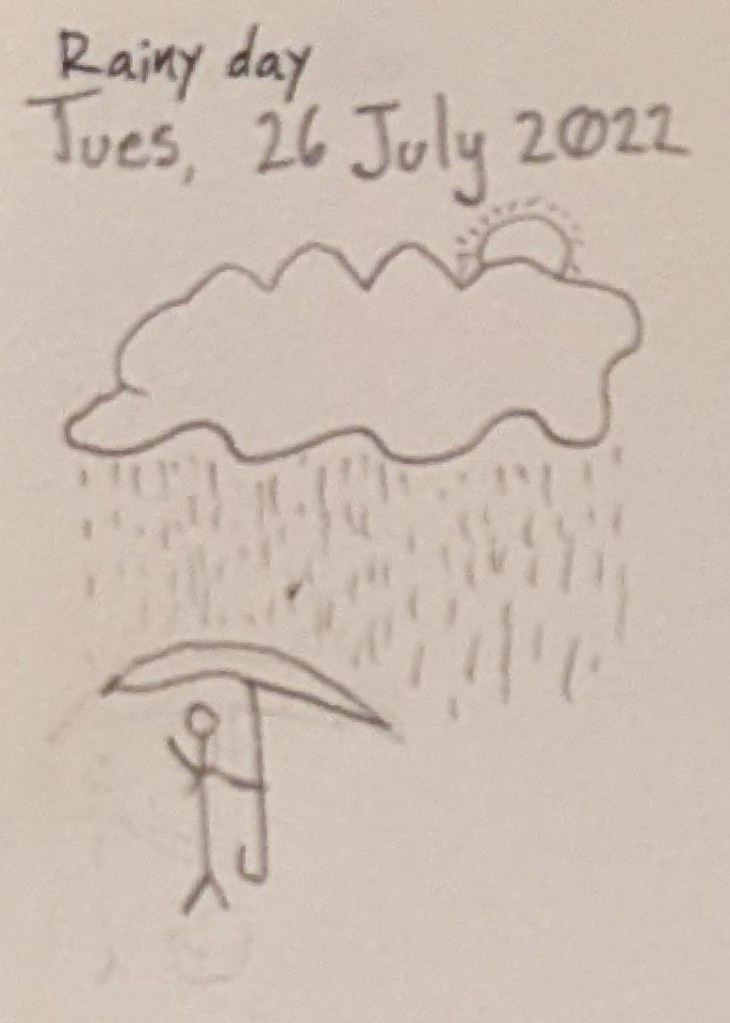 Rainy day
Tues, 26 July 2022